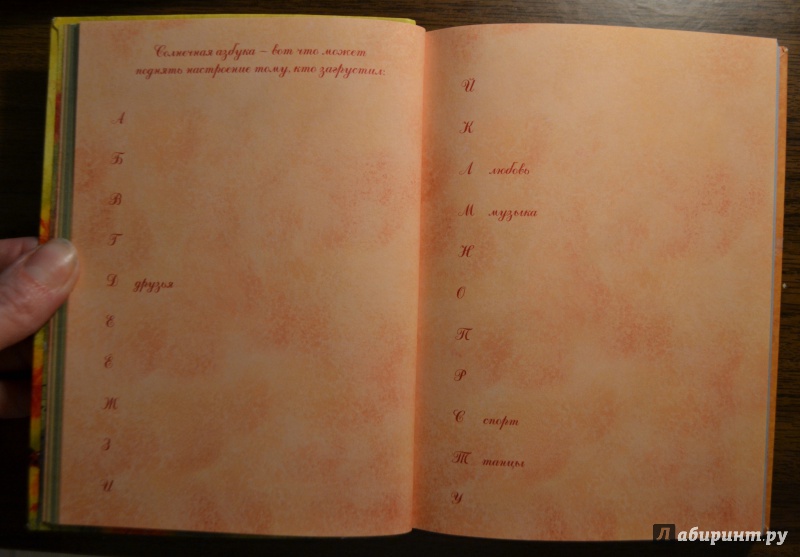 Солнечная азбука – вот что может
поднять настроение тому, кто загрустил:
А
Б
В
Г
Д друзья
Е
Ё
Ж
З
И
Й
К
Л любовь
М музыка
Н
О
П
Р
С спорт
Т танцы
У
Лабиринт.ру